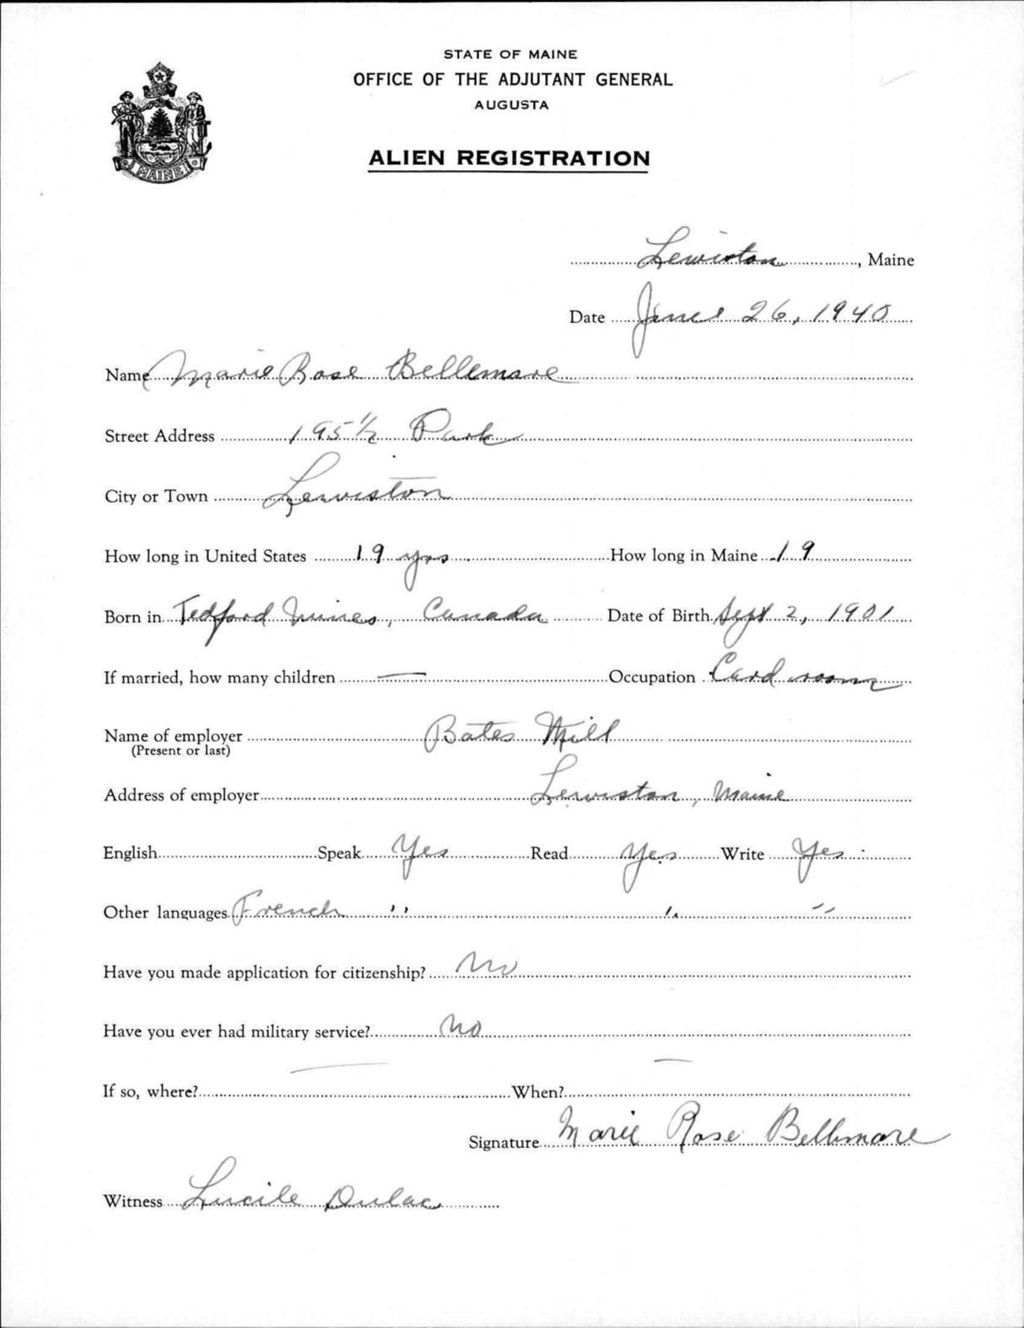 STATE OF MAINE
OFFICE OF THE ADJUTANT GENERAL
AUGUSTA
ALIEN REGISTRATION
MAINE
Lewiston, Maine
Date June 26, 1940
Name Marie Rose Bellemare
Street Address 195 1/2 Park
City or Town Lewiston
How long in United States 19 yrs How long in Maine 19
Born in Tedford Mines, Canada Date of Birth Sept 2, 1901
If married, how many children — Occupation Card room
Name of employer Bates Mill
(Present or last)
Address of employer Lewiston, Maine
English Speak Yes Read Yes Write Yes
Other languages French " " "
Have you made application for citizenship? No
Have you ever had military service? No
If so, where? — When? —
Signature Marie Rose Bellemare
Witness Lucile Dulac